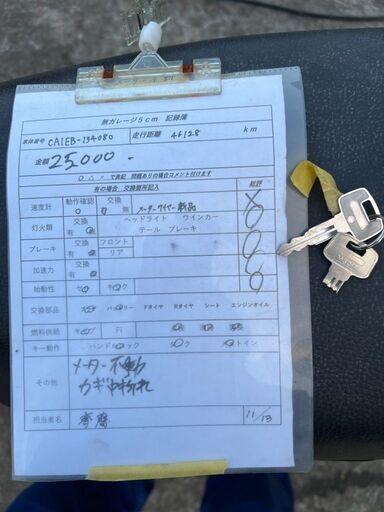 無ガレージ5cm 記録簿
車体番号 CA1EB-134080 走行距離 46128 km
金額 25.000-
○ △ × で表記 問題ありの場合コメント付けます
有の場合 交換箇所記入 総評
速度計 動作確認 交換 無 メーターワイヤー新品 ×
灯火類 交換 有 ヘッドライト ウインカー
テール ブレーキ ○
ブレーキ 交換 有 フロント
リア ○
加速力 有 ○
始動性 セル キック ○
交換部品 バッテリー Fタイヤ Rタイヤ シート エンジンオイル
燃料供給 キャブ Fi
キー動作 ハンドルロック メットイン
その他 メーター不動
カギ中折れ
担当者名 11/13